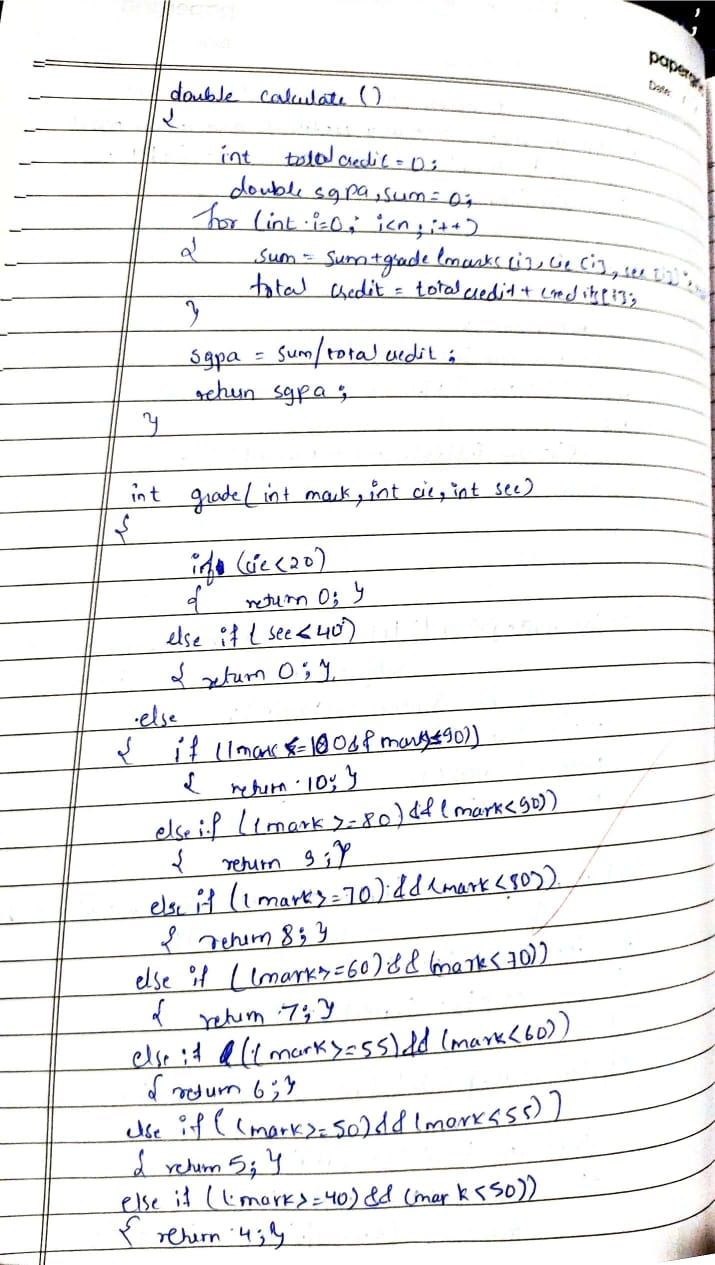 paper
Date
double calculate ()
{
int totalcredit = 0;
double sgpa, sum = 0;
for (int i=0; i<n; i++)
{ sum = sum+grade (marks[i], cie[i], see[i])
total credit = totalcredit + credits[i];
}
sgpa = sum/totalcredit;
return sgpa;
}
int grade( int mark, int cie, int see)
{
if (cie <20)
{ return 0; }
else if ( see<40)
{ return 0; }
else
{ if ((mark <=100 && mark ≤90))
{ return 10; }
else if ((mark >=80) && (mark<90))
{ return 9; }
else if ((mark>=70) && (mark <80))
{ return 8; }
else if ((mark>=60) && (mark<70))
{ return 7; }
else if ((mark>=55) && (mark<60))
{ return 6; }
else if ((mark>=50) && (mark<55))
{ return 5; }
else if ((mark>=40) && (mark<50))
{ return 4; }